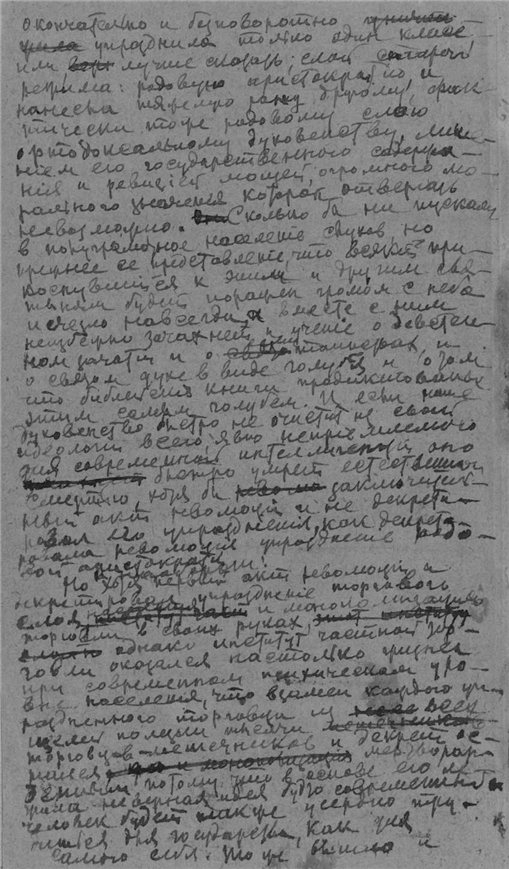 окончательно и безповоротно
упразднила только один класс
или лучше сказать: слой старого
режима: родовую аристократию, и
нанесла тяжелую рану другому, фак-
тически тоже родовому слою
ортодоксальному духовенству, лише-
нием его государственного содержа-
ния и ревизией мощей, огромного мо-
рального значения которой отвергать
невозможно. Сколько бы ни пускали
в полуграмотное население слухов но
прежнее ее представление что всякий при-
коснувшийся к этим и другим свя-
тыням будет поражен громом с неба
исчезло навсегда а вместе с ним
неизбежно зачахнет и учение о девствен-
ном зачатии и о и
о святом духе в виде голубя и о том
что библейские книги продиктованы
этим самым голубем. И если наше
духовенство быстро не очистит из своей
идеологии всего явно неприемлемого
для современной интеллигенции, оно
быстро умрет естественной
смертью, хотя бы заключитель-
ный акт революции и не декрети-
ровал его упразднения, как декрети-
ровала революция упразднение родо-
вой аристократии.
Но хотя первый акт революции и
декретировал упразднение торгового
слоя и монополизацию
торговли в своих руках
однако институт частной тор-
говли оказался настолько
при современном психическом уро-
вне населения, что взамен каждого уп-
раздненного торговца из всех
щелей полезли тысячи
торговцев-мешечников и декрет ос-
тался мертворож-
денным потому, что в основе его ле-
жала неверная идея будто современный
человек будет также усердно тру-
диться для государства, как для
самого себя. Тоже вышло и